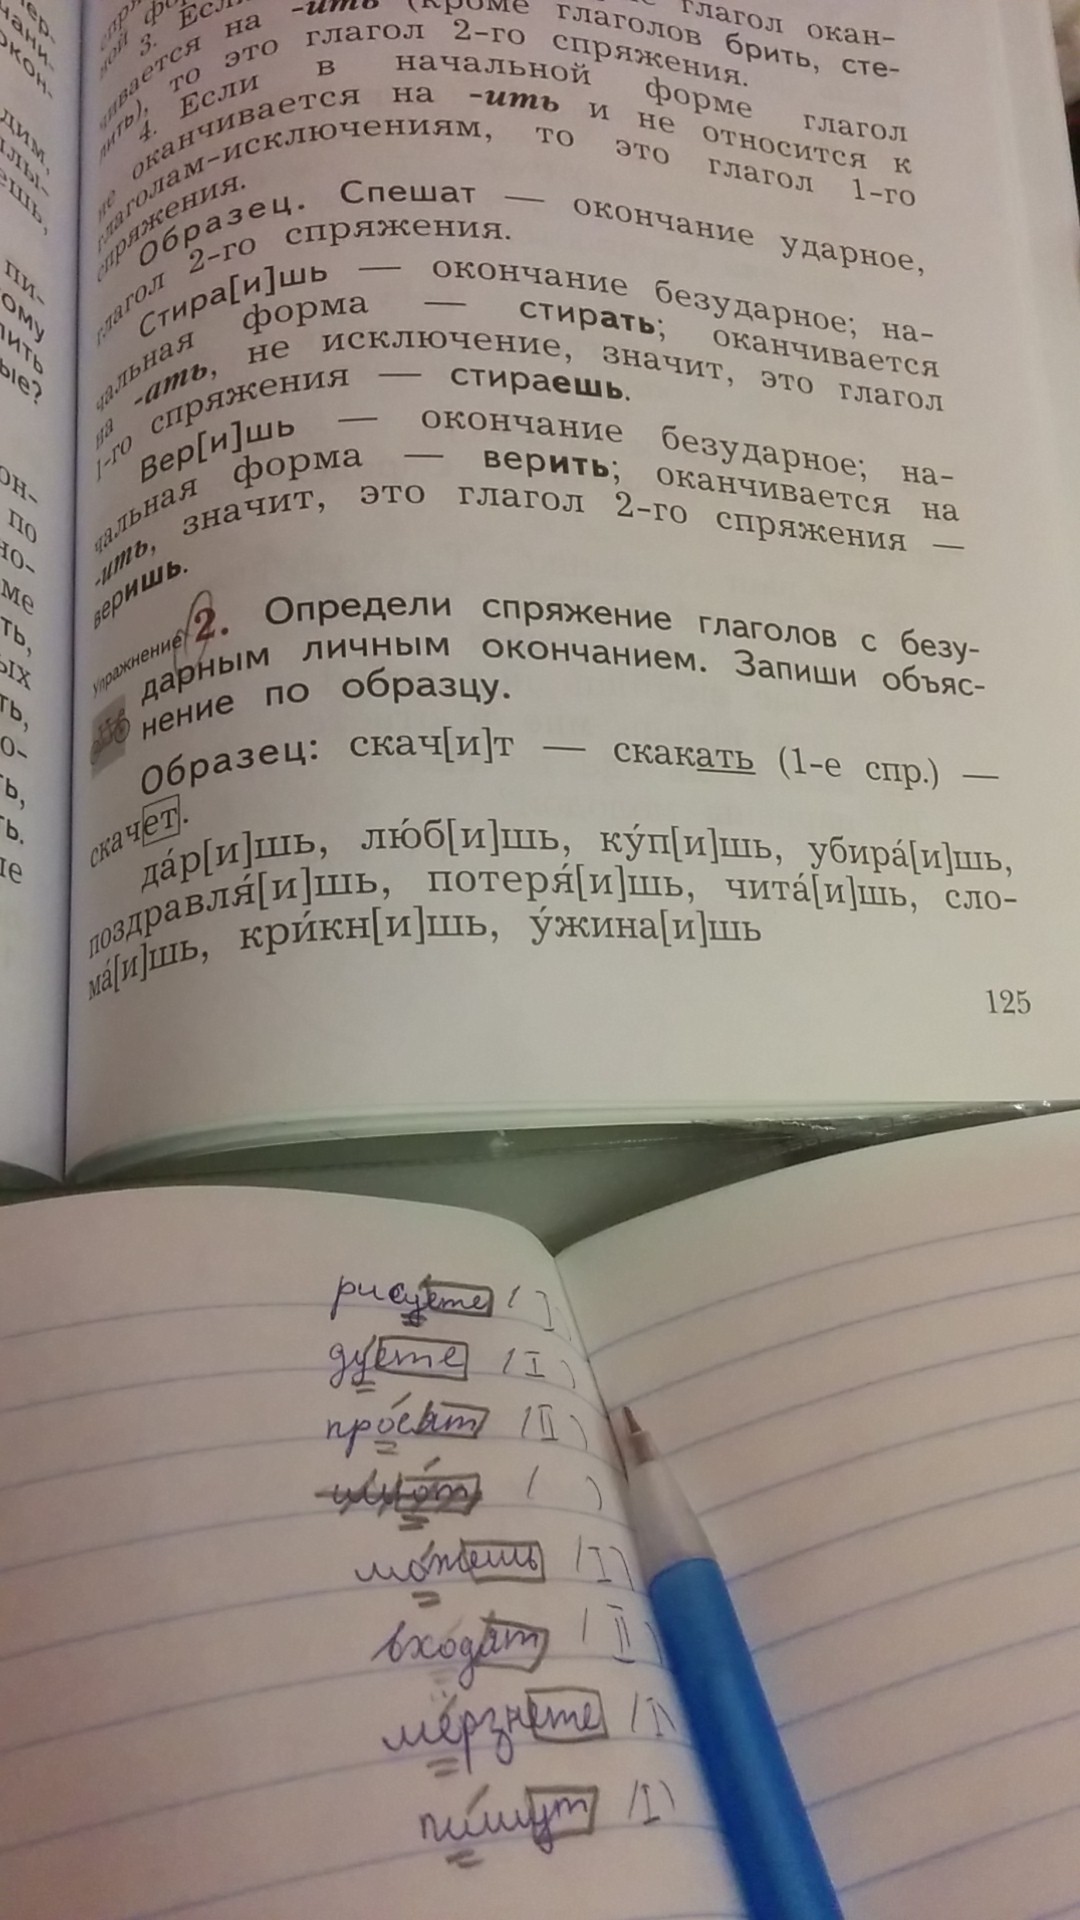 глагол окан-
3. Если
чивается на -ить (кроме глаголов брить, сте-
лить), то это глагол 2-го спряжения.
4. Если в начальной форме глагол
не оканчивается на -ить и не относится к
глаголам-исключениям, то это глагол 1-го
спряжения.
Образец. Спешат — окончание ударное,
глагол 2-го спряжения.
Стира[и]шь — окончание безударное; на-
чальная форма — стирать; оканчивается
на -ать, не исключение, значит, это глагол
1-го спряжения — стираешь.
Вер[и]шь — окончание безударное; на-
чальная форма — верить; оканчивается на
-ить, значит, это глагол 2-го спряжения —
веришь.
Упражнение 2. Определи спряжение глаголов с безу-
дарным личным окончанием. Запиши объяс-
нение по образцу.
Образец: скач[и]т — скакать (1-е спр.) —
скачет.
да́р[и]шь, лю́б[и]шь, ку́п[и]шь, убира́[и]шь,
поздравля́[и]шь, потеря́[и]шь, чита́[и]шь, сло-
ма́[и]шь, кри́кн[и]шь, у́жина[и]шь
125
рисуете (I)
ду́ете (I)
про́сят (II)
мо́жешь (I)
вхо́дят (II)
мёрзнете (I)
пи́шут (I)